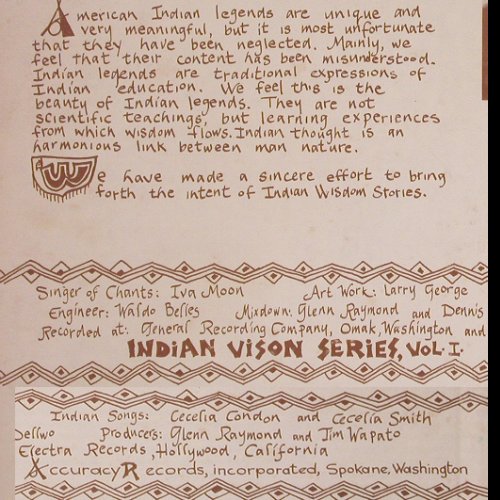 American Indian legends are unique and
very meaningful, but it is most unfortunate
that they have been neglected. Mainly, we
feel that their content has been misunderstood.
Indian legends are traditional expressions of
Indian education. We feel this is the
beauty of Indian legends. They are not
scientific teachings, but learning experiences
from which wisdom flows. Indian thought is an
harmonious link between man nature.
We have made a sincere effort to bring
forth the intent of Indian Wisdom Stories.
Singer of Chants: Iva Moon Art Work: Larry George
Engineer: Waldo Belles Mixdown: Glenn Raymond and Dennis
Recorded at: General Recording Company, Omak, Washington and
INDIAN VISON SERIES, VOL. I.
Indian Songs: Cecelia Condon and Cecelia Smith
Dellwo Producers: Glenn Raymond and Jim Wapato
Electra Records, Hollywood, California
Accuracy Records, incorporated, Spokane, Washington